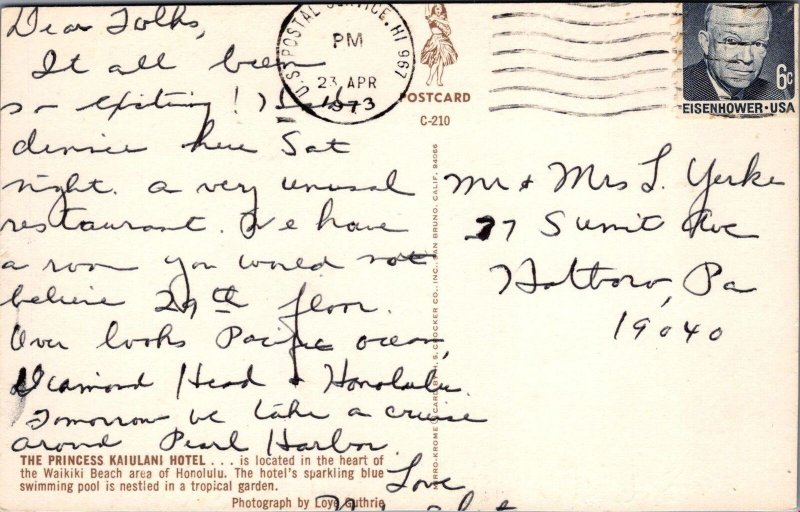 Dear Folks,
It all been
so exiting! I had
dinnie here Sat
night. a very unusal
restaurant. We have
a room you would not
believe 29th floor.
Over looks Pacific ocean,
Diamond Head & Honolulu.
Tomorrow we take a cruise
around Pearl Harbor.
Love
U.S. POSTAL SERVICE, HI 967
PM
23 APR
1973
POSTCARD
C-210
6c
EISENHOWER·USA
Mr & Mrs L. Yerke
27 Sumit Ave
Hatboro, Pa
19040
MIRRO-KROME CARD BY H. S. CROCKER CO., INC., SAN BRUNO, CALIF. 94066
THE PRINCESS KAIULANI HOTEL . . . is located in the heart of
the Waikiki Beach area of Honolulu. The hotel's sparkling blue
swimming pool is nestled in a tropical garden.
Photograph by Loye Guthrie